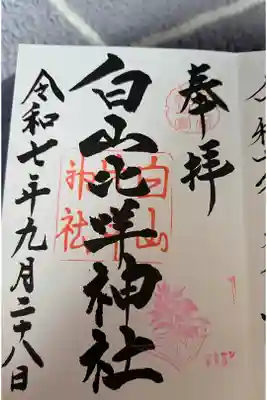 奉拝
白山比咩神社
白山
神社
令和七年九月二十八日